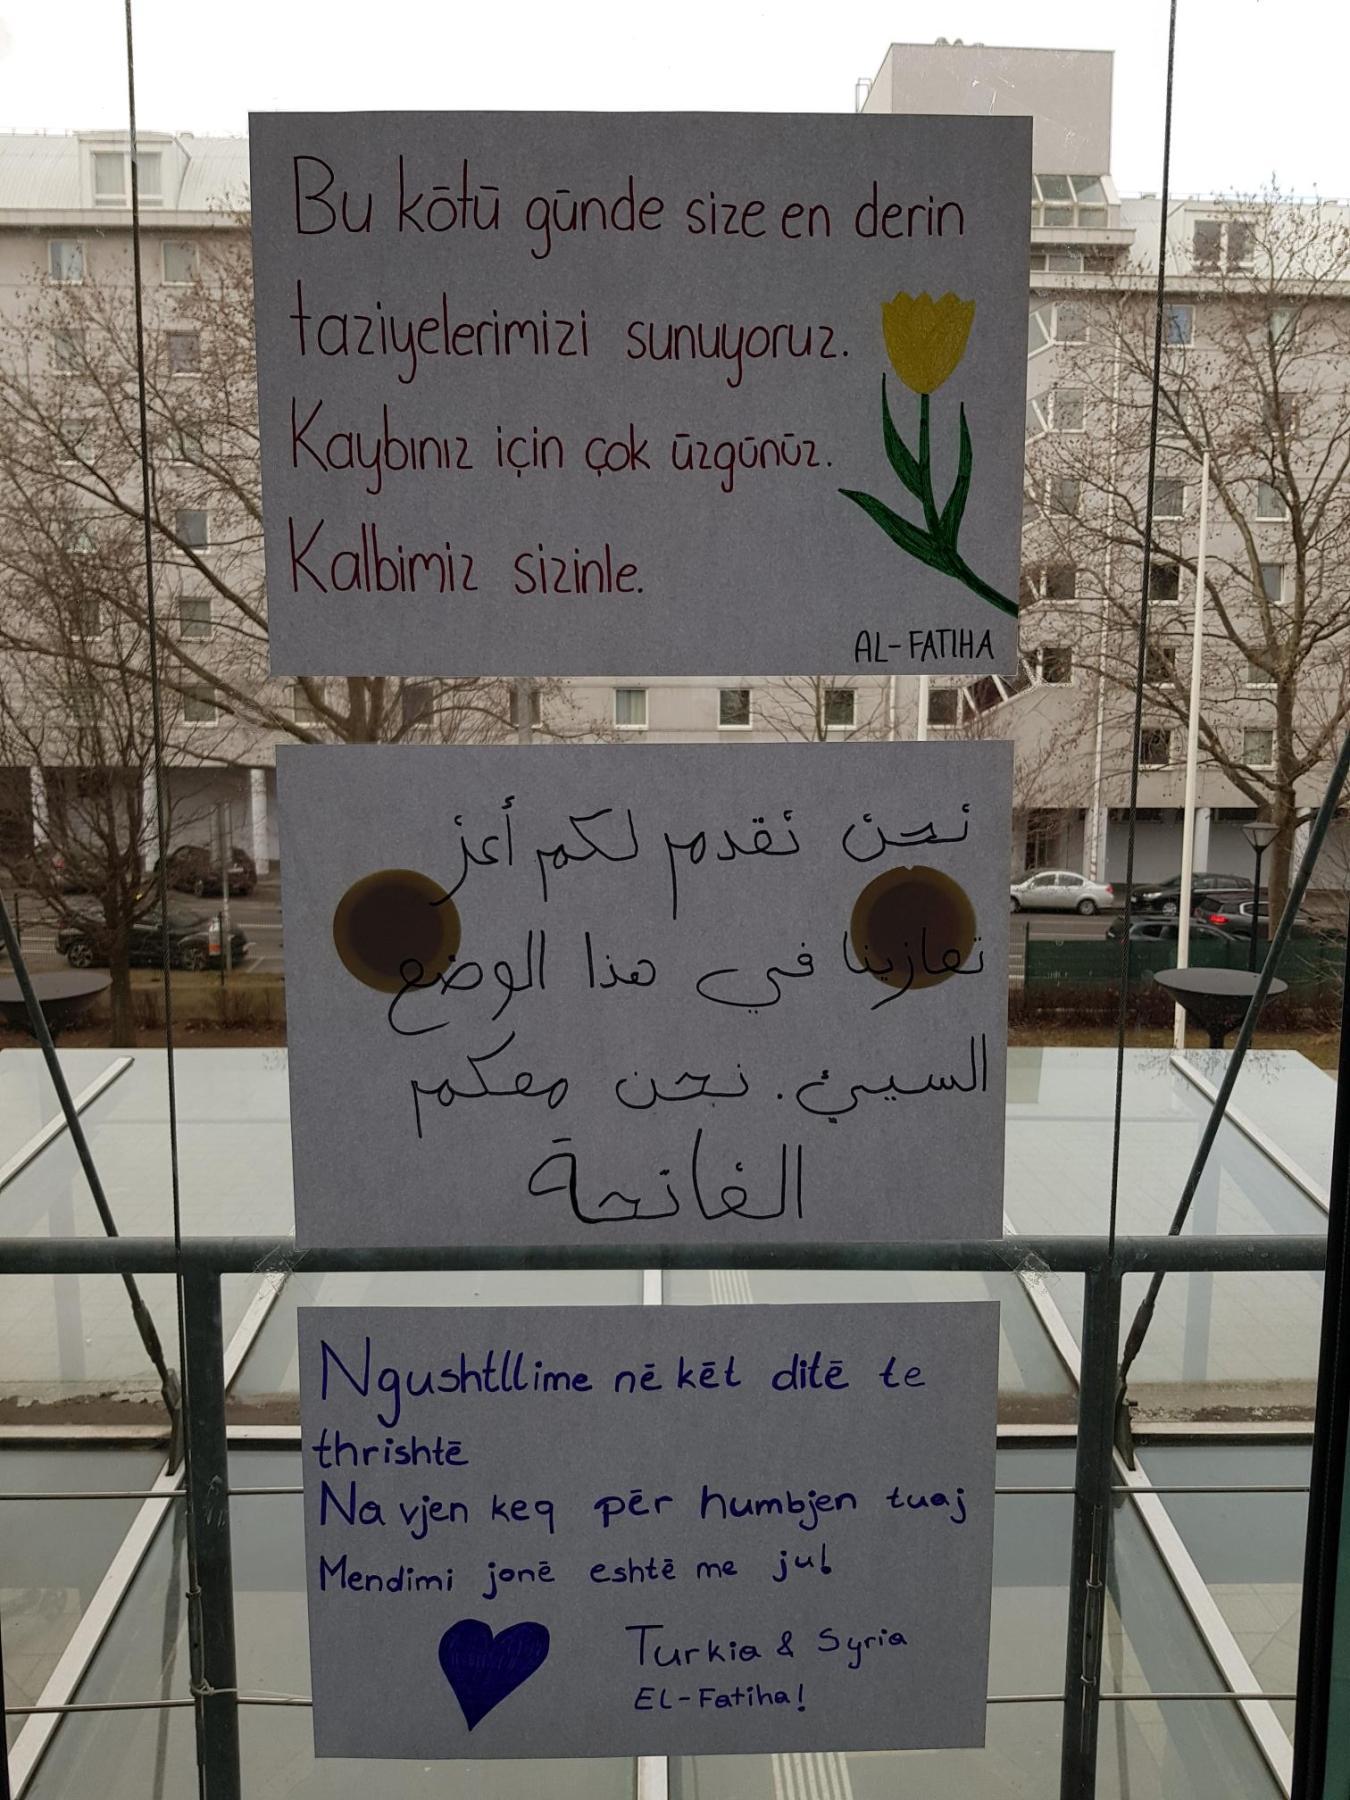 Bu kötü günde size en derin
taziyelerimizi sunuyoruz.
Kaybınız için çok üzgünüz.
Kalbimiz sizinle.
AL-FATIHA
نحن نقدم لكم أعز
تعازينا في هذا الوضع
السيئ. نحن معكم
الفاتحة
Ngushtllime në kët ditë te
thrishtë
Na vjen keq për humbjen tuaj
Mendimi jonë eshtë me ju!
Turkia & Syria
El-Fatiha!